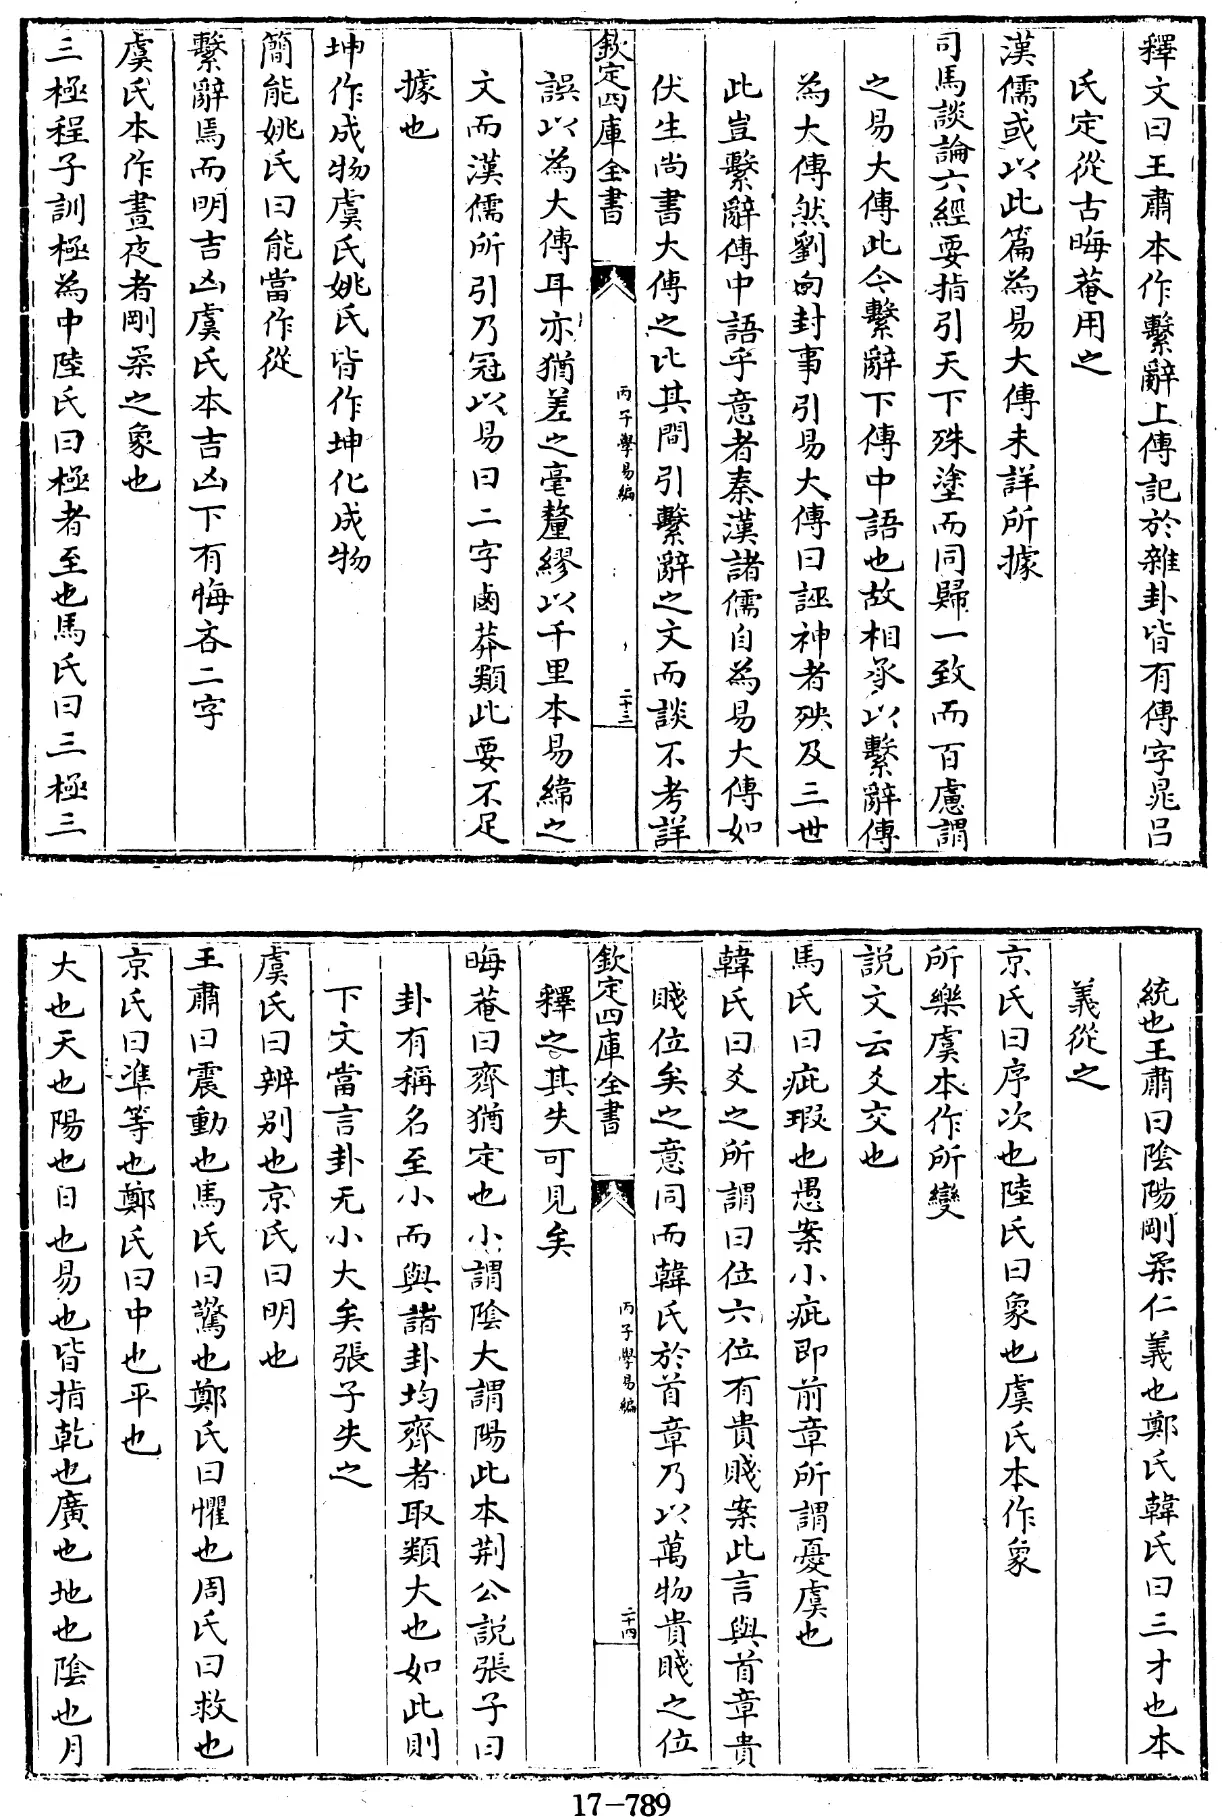 釋文曰王肅本作繫辭上傳記於雜卦皆有傳字晁呂
氏定從古晦菴用之
漢儒或以此篇為易大傳未詳所據
司馬談論六經要指引天下殊塗而同歸一致而百慮謂
之易大傳此今繫辭下傳中語也故相承以繫辭傳
為大傳然劉向封事引易大傳曰誣神者殃及三世
此豈繫辭傳中語乎意者秦漢諸儒自為易大傳如
伏生尚書大傳之比其間引繫辭之文而談不考詳
欽定四庫全書
丙子學易編
二十三
誤以為大傳耳亦猶差之毫釐繆以千里本易緯之
文而漢儒所引乃冠以易曰二字鹵莽類此要不足
據也
坤作成物虞氏姚氏皆作坤化成物
簡能姚氏曰能當作從
繫辭焉而明吉凶虞氏本吉凶下有悔吝二字
虞氏本作晝夜者剛柔之象也
三極程子訓極為中陸氏曰極者至也馬氏曰三極三
統也王肅曰陰陽剛柔仁義也鄭氏韓氏曰三才也本
義從之
京氏曰序次也陸氏曰象也虞氏本作象
所樂虞本作所變
說文云爻交也
馬氏曰疵瑕也愚案小疵即前章所謂憂虞也
韓氏曰爻之所謂曰位六位有貴賤案此言與首章貴
賤位矣之意同而韓氏於首章乃以萬物貴賤之位
欽定四庫全書
丙子學易編
二十四
釋之其失可見矣
晦菴曰齊猶定也小謂陰大謂陽此本荆公說張子曰
卦有稱名至小而與諸卦均齊者取類大也如此則
下文當言卦无小大矣張子失之
虞氏曰辨别也京氏曰明也
王肅曰震動也馬氏曰驚也鄭氏曰懼也周氏曰救也
京氏曰準等也鄭氏曰中也平也
大也天也陽也日也易也皆指乾也廣也地也陰也月
17-789